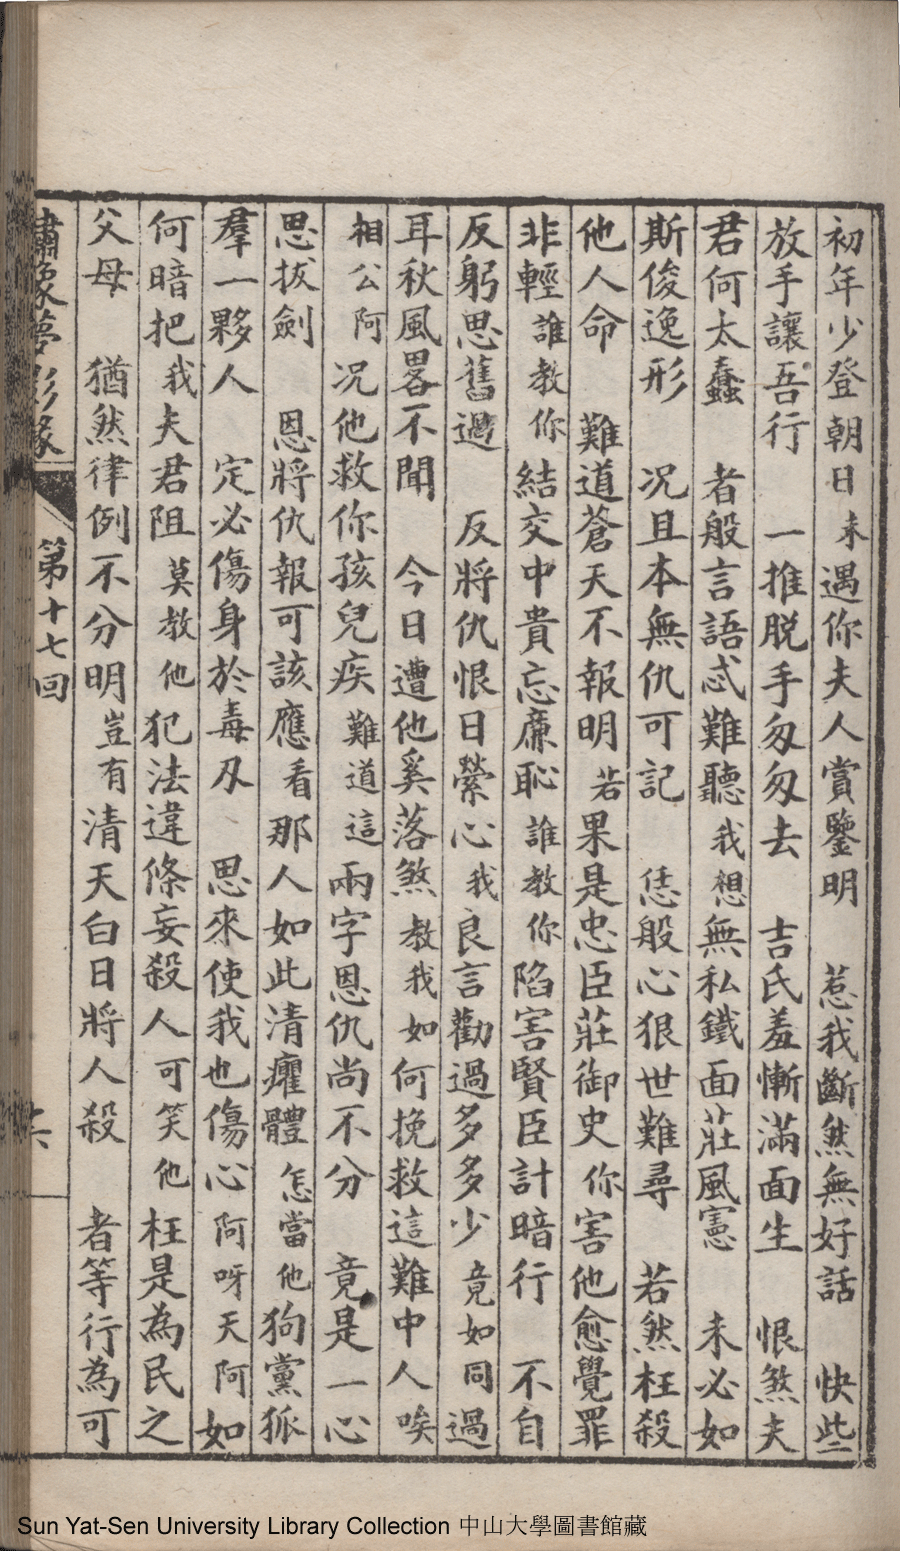 初年少登朝日 未遇你夫人賞鑒明 惹我斷然無好話 快些
放手讓吾行 一推脱手匆匆去 吉氏羞慚滿面生 恨煞夫
君何太蠢 者般言語忒難聽 我想無私鐵面莊風憲 未必如
斯俊逸形 况且本無仇可記 恁般心狠世難尋 若然枉殺
他人命 難道蒼天不報明 若果是忠臣莊御史 你害他愈覺罪
非輕 誰教你結交中貴忘廉恥 誰教你陷害賢臣計暗行 不自
反躬思舊過 反將仇恨日縈心 我良言勸過多多少 竟如同過
耳秋風畧不聞 今日遭他奚落煞 教我如何挽救這難中人 唉
相公阿 况他救你孩兒疾 難道這兩字恩仇尚不分 竟是一心
思拔劍 恩將仇報可該應 看那人如此清癯體 怎當他狗黨狐
羣一夥人 定必傷身於毒刄 思來使我也傷心 阿呀天阿 如
何暗把我夫君阻 莫教他犯法違條妄殺人 可笑他枉是為民之
父母 猶然律例不分明 豈有清天白日將人殺 者等行為可
繡像夢影緣 第十七回
Sun Yat-Sen University Library Collection 中山大學圖書館藏